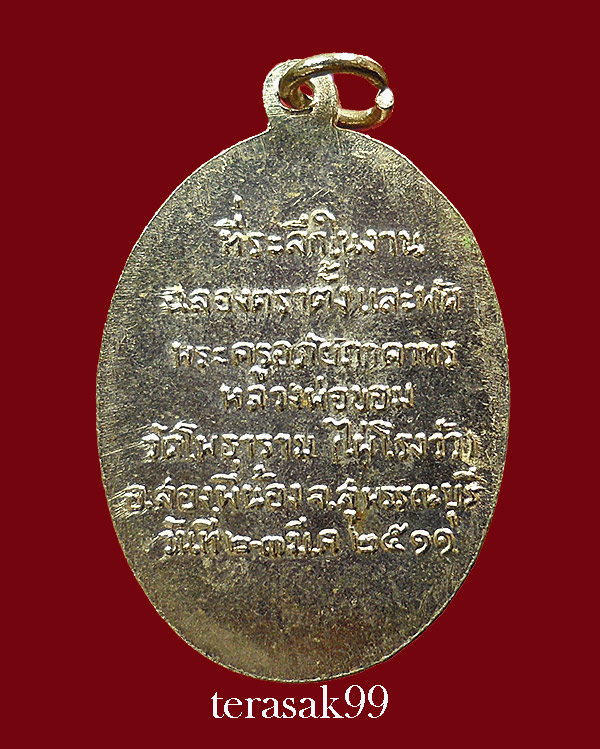 ที่ระลึกในงาน
ฉลองตราตั้งและพัด
พระครูอภัยภาดาทร
หลวงพ่อขอม
วัดโพธาราม (ไผ่โรงวัว)
อ.สองพี่น้อง จ.สุพรรณบุรี
วันที่ ๒-๓ มี.ค ๒๕๑๑
terasak99